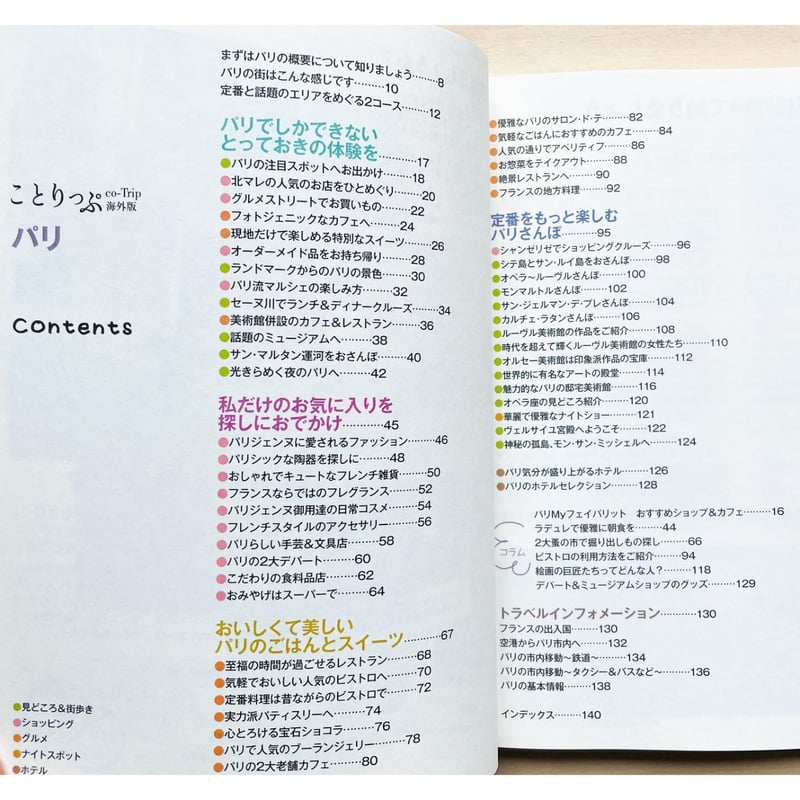 ことりっぷ co-Trip
海外版
パリ
Contents
●見どころ&街歩き
●ショッピング
●グルメ
●ナイトスポット
●ホテル
まずはパリの概要について知りましょう……8
パリの街はこんな感じです………10
定番と話題のエリアをめぐる2コース……12
パリでしかできない
とっておきの体験を…………17
●パリの注目スポットへお出かけ……18
●北マレの人気のお店をひとめぐり……20
●グルメストリートでお買いもの……22
●フォトジェニックなカフェへ……24
●現地だけで楽しめる特別なスイーツ……26
●オーダーメイド品をお持ち帰り……28
●ランドマークからのパリの景色……30
●パリ流マルシェの楽しみ方………32
●セーヌ川でランチ&ディナークルーズ……34
●美術館併設のカフェ&レストラン……36
●話題のミュージアムへ………38
●サン・マルタン運河をおさんぽ………40
●光きらめく夜のパリへ………42
私だけのお気に入りを
探しにおでかけ…………45
●パリジェンヌに愛されるファッション……46
●パリシックな陶器を探しに……48
●おしゃれでキュートなフレンチ雑貨……50
●フランスならではのフレグランス……52
●パリジェンヌ御用達の日常コスメ……54
●フレンチスタイルのアクセサリー……56
●パリらしい手芸&文具店………58
●パリの2大デパート………60
●こだわりの食料品店………62
●おみやげはスーパーで………64
おいしくて美しい
パリのごはんとスイーツ………67
●至福の時間が過ごせるレストラン……68
●気軽でおいしい人気のビストロへ……70
●定番料理は昔ながらのビストロで……72
●実力派パティスリーへ………74
●心とろける宝石ショコラ………76
●パリで人気のブーランジェリー………78
●パリの2大老舗カフェ………80
●優雅なパリのサロン・ド・テ………82
●気軽なごはんにおすすめのカフェ………84
●人気の通りでアペリティフ………86
●お惣菜をテイクアウト………88
●絶景レストランへ………90
●フランスの地方料理………92
定番をもっと楽しむ
パリさんぽ…………95
●シャンゼリゼでショッピングクルーズ………96
●シテ島とサン・ルイ島をおさんぽ………98
●オペラ〜ルーヴルさんぽ………100
●モンマルトルさんぽ………102
●サン・ジェルマン・デ・プレさんぽ………104
●カルチェ・ラタンさんぽ………106
●ルーヴル美術館の作品をご紹介………108
●時代を超えて輝くルーヴル美術館の女性たち………110
●オルセー美術館は印象派作品の宝庫………112
●世界的に有名なアートの殿堂………114
●魅力的なパリの邸宅美術館………116
●オペラ座の見どころ紹介………120
●華麗で優雅なナイトショー………121
●ヴェルサイユ宮殿へようこそ………122
●神秘の孤島、モン・サン・ミッシェルへ………124
●パリ気分が盛り上がるホテル………126
●パリのホテルセレクション………128
コラム
パリMyフェイバリット おすすめショップ&カフェ………16
ラデュレで優雅に朝食を………44
2大蚤の市で掘り出しもの探し………66
ビストロの利用方法をご紹介………94
絵画の巨匠たちってどんな人?………118
デパート&ミュージアムショップのグッズ………129
トラベルインフォメーション………130
フランスの出入国………130
空港からパリ市内へ………132
パリの市内移動〜鉄道〜………134
パリの市内移動〜タクシー&バスなど〜………136
パリの基本情報………138
インデックス………140